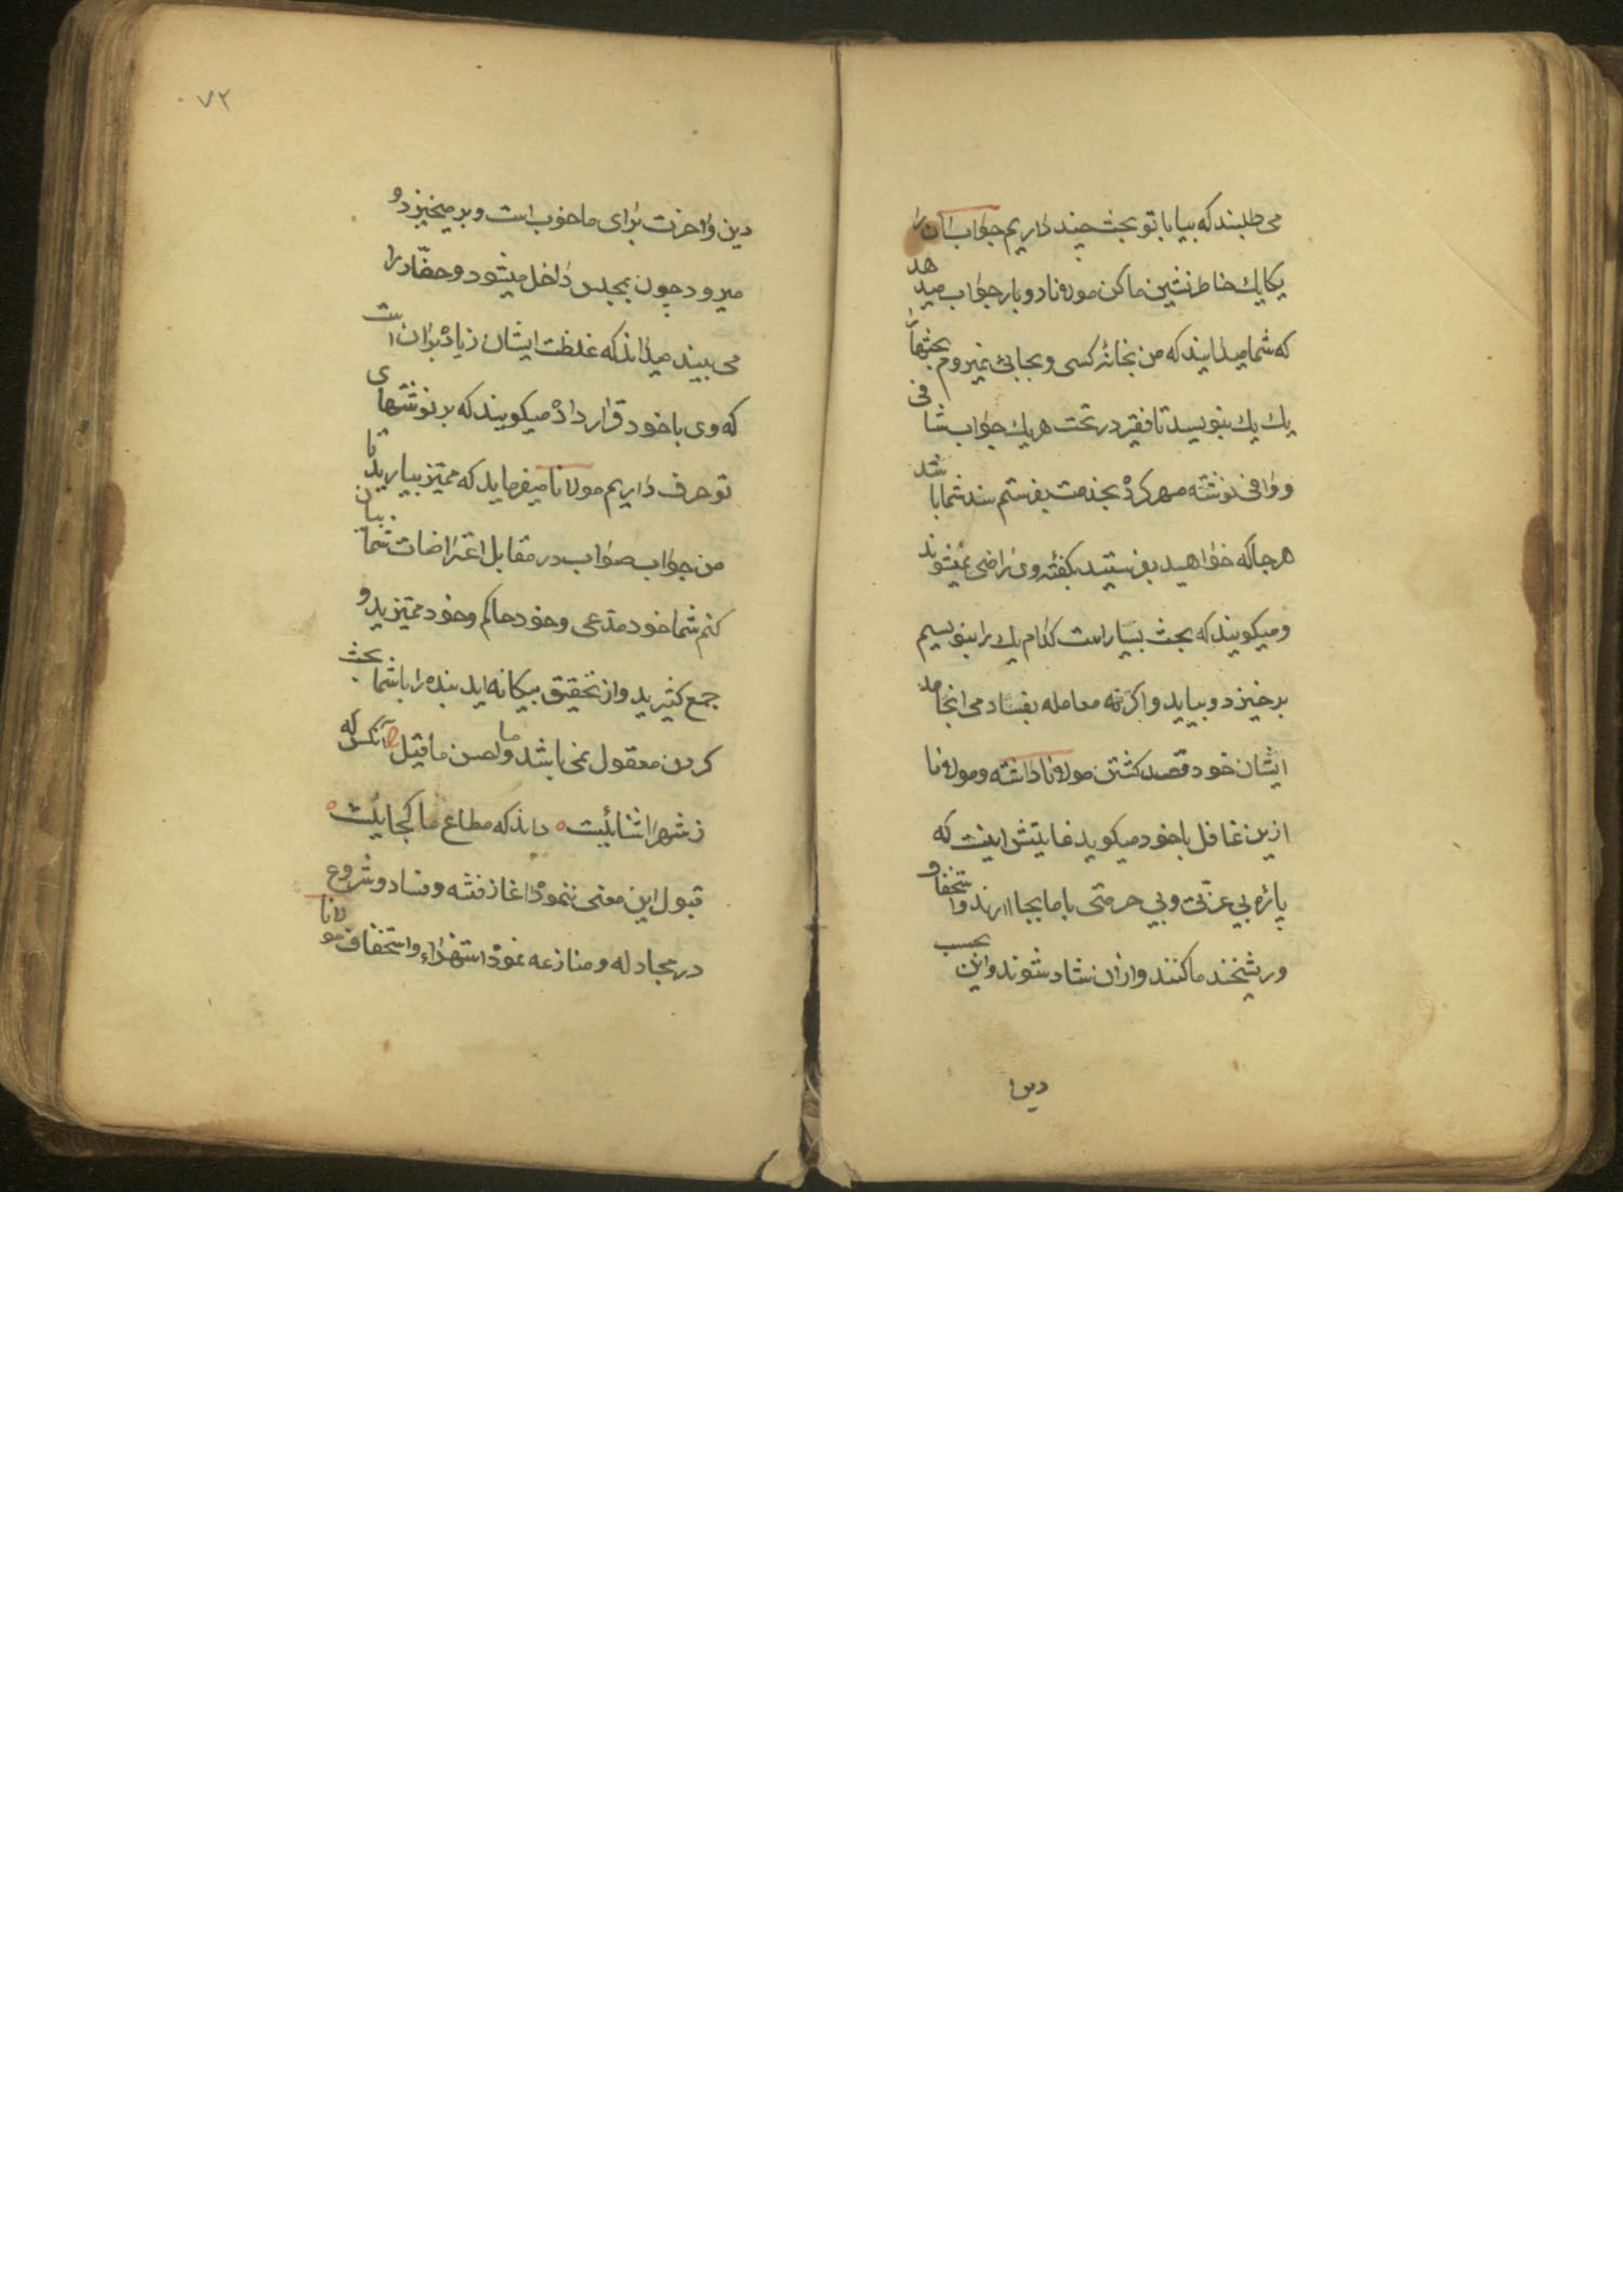 می طلبند که بیا با تو بحث چند داریم جواب آن را
یکایک خاطرنشین ما کن مولانا دو بار جواب میدهد
که شما میدانید که من بخانهٔ کسی و بجایی نمیروم بحثها را
یک یک بنویسید تا فقیر در تحت هر یک جواب شافی
و وافی نوشته مهر کرده بخدمت بفرستم سند شما باشد
هر جا که خواهید بفرستید بگفتهٔ وی راضی نمیشوند
و میکویند که بحث بسیار است کدام یک را بنویسیم
برخیزد و بیاید و اکر نه معامله بفساد می انجامد
ایشان خود قصد کشتن مولانا داشته و مولانا
ازین غافل باخود میکوید غایتش اینست که
پارهٔ بی عزتی و بی حرمتی با ما بجا آرند و استخفاف
و ریشخند ما کنند و ازان شاد شوند و این بحسب
دین و
۷۲
دین و آخرت برای ما خوب است و برمیخیزد و
میرود چون بمجلس داخل میشود و حضّار را
می بیند میداند که غلظت ایشان زیاده بران است
که وی باخود قرار داده میکویند که بر نوشتهای
تو حرف داریم مولانا میفرماید که ممیّز بیارید تا
من جواب صواب در مقابل اعتراضات شما بیان
کنم شما خود مدّعی و خود حاکم و خود ممیّزید و
جمع کثیرید و از تحقیق بیکانه اید بنده را با شما بحث
کردن معقول نمی باشد و ما احسن ما قیل آنکس که
ز شهر آشنائیست داند که مطاع ما کجائیست
قبول این معنی ننموده آغاز فتنه و فساد و شروع
در مجادله و منازعه نموده استهزاء و استخفاف مولانا